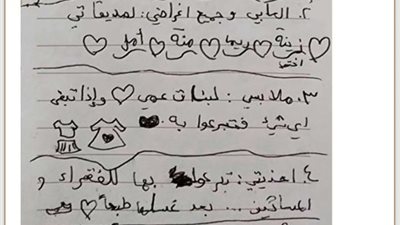 ٢. العابي وجميع اغراضي: لصديقاتي
زينة ريما منة أمل
اختي
٣. ملابسي: لبنات عمي وإذا تبقى
اي شيء فتبرعوا به.
٤. احذيتي: تبرعوا بها للفقراء و
المساكين ... بعد غسلها طبعاً